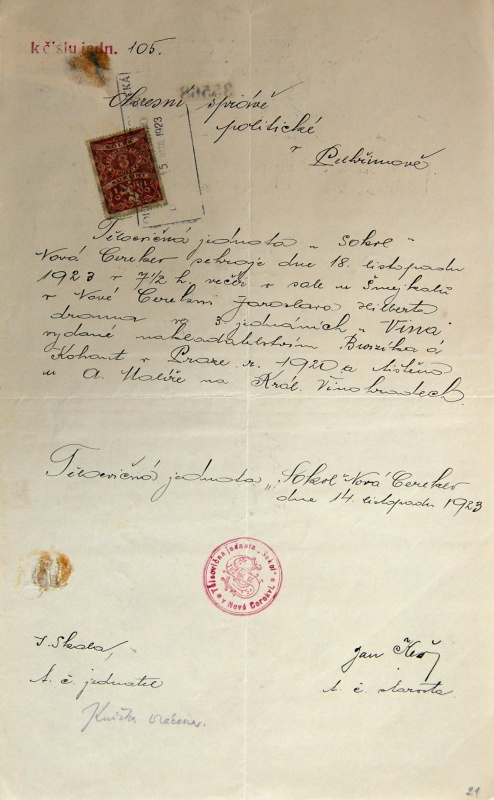 k číslu jedn. 105.
Okresní správě
politické
v Pelhřimově
1923
3
Tělocvičná jednota „Sokol“
Nová Cerekev sehraje dne 18. listopadu
1923 v 7 1/2 h. večer v sále u Šmejkalů
v Nové Cerekvi Jaroslava Hilberta
drama ve 3 jednáních „Vina“
vydané nakladatelstvím Bursíka a
Kohout v Praze r. 1920 a tištěno
u A. Malíře na Král. Vinohradech.
Tělocvičná jednota „Sokol“ Nová Cerekev
dne 14. listopadu 1923
Tělocvičná jednota „Sokol“
v Nové Cerekvi
J. Skala,
t. č. jednatel
Jan
t. č. starosta
Knížka vrácena.
21